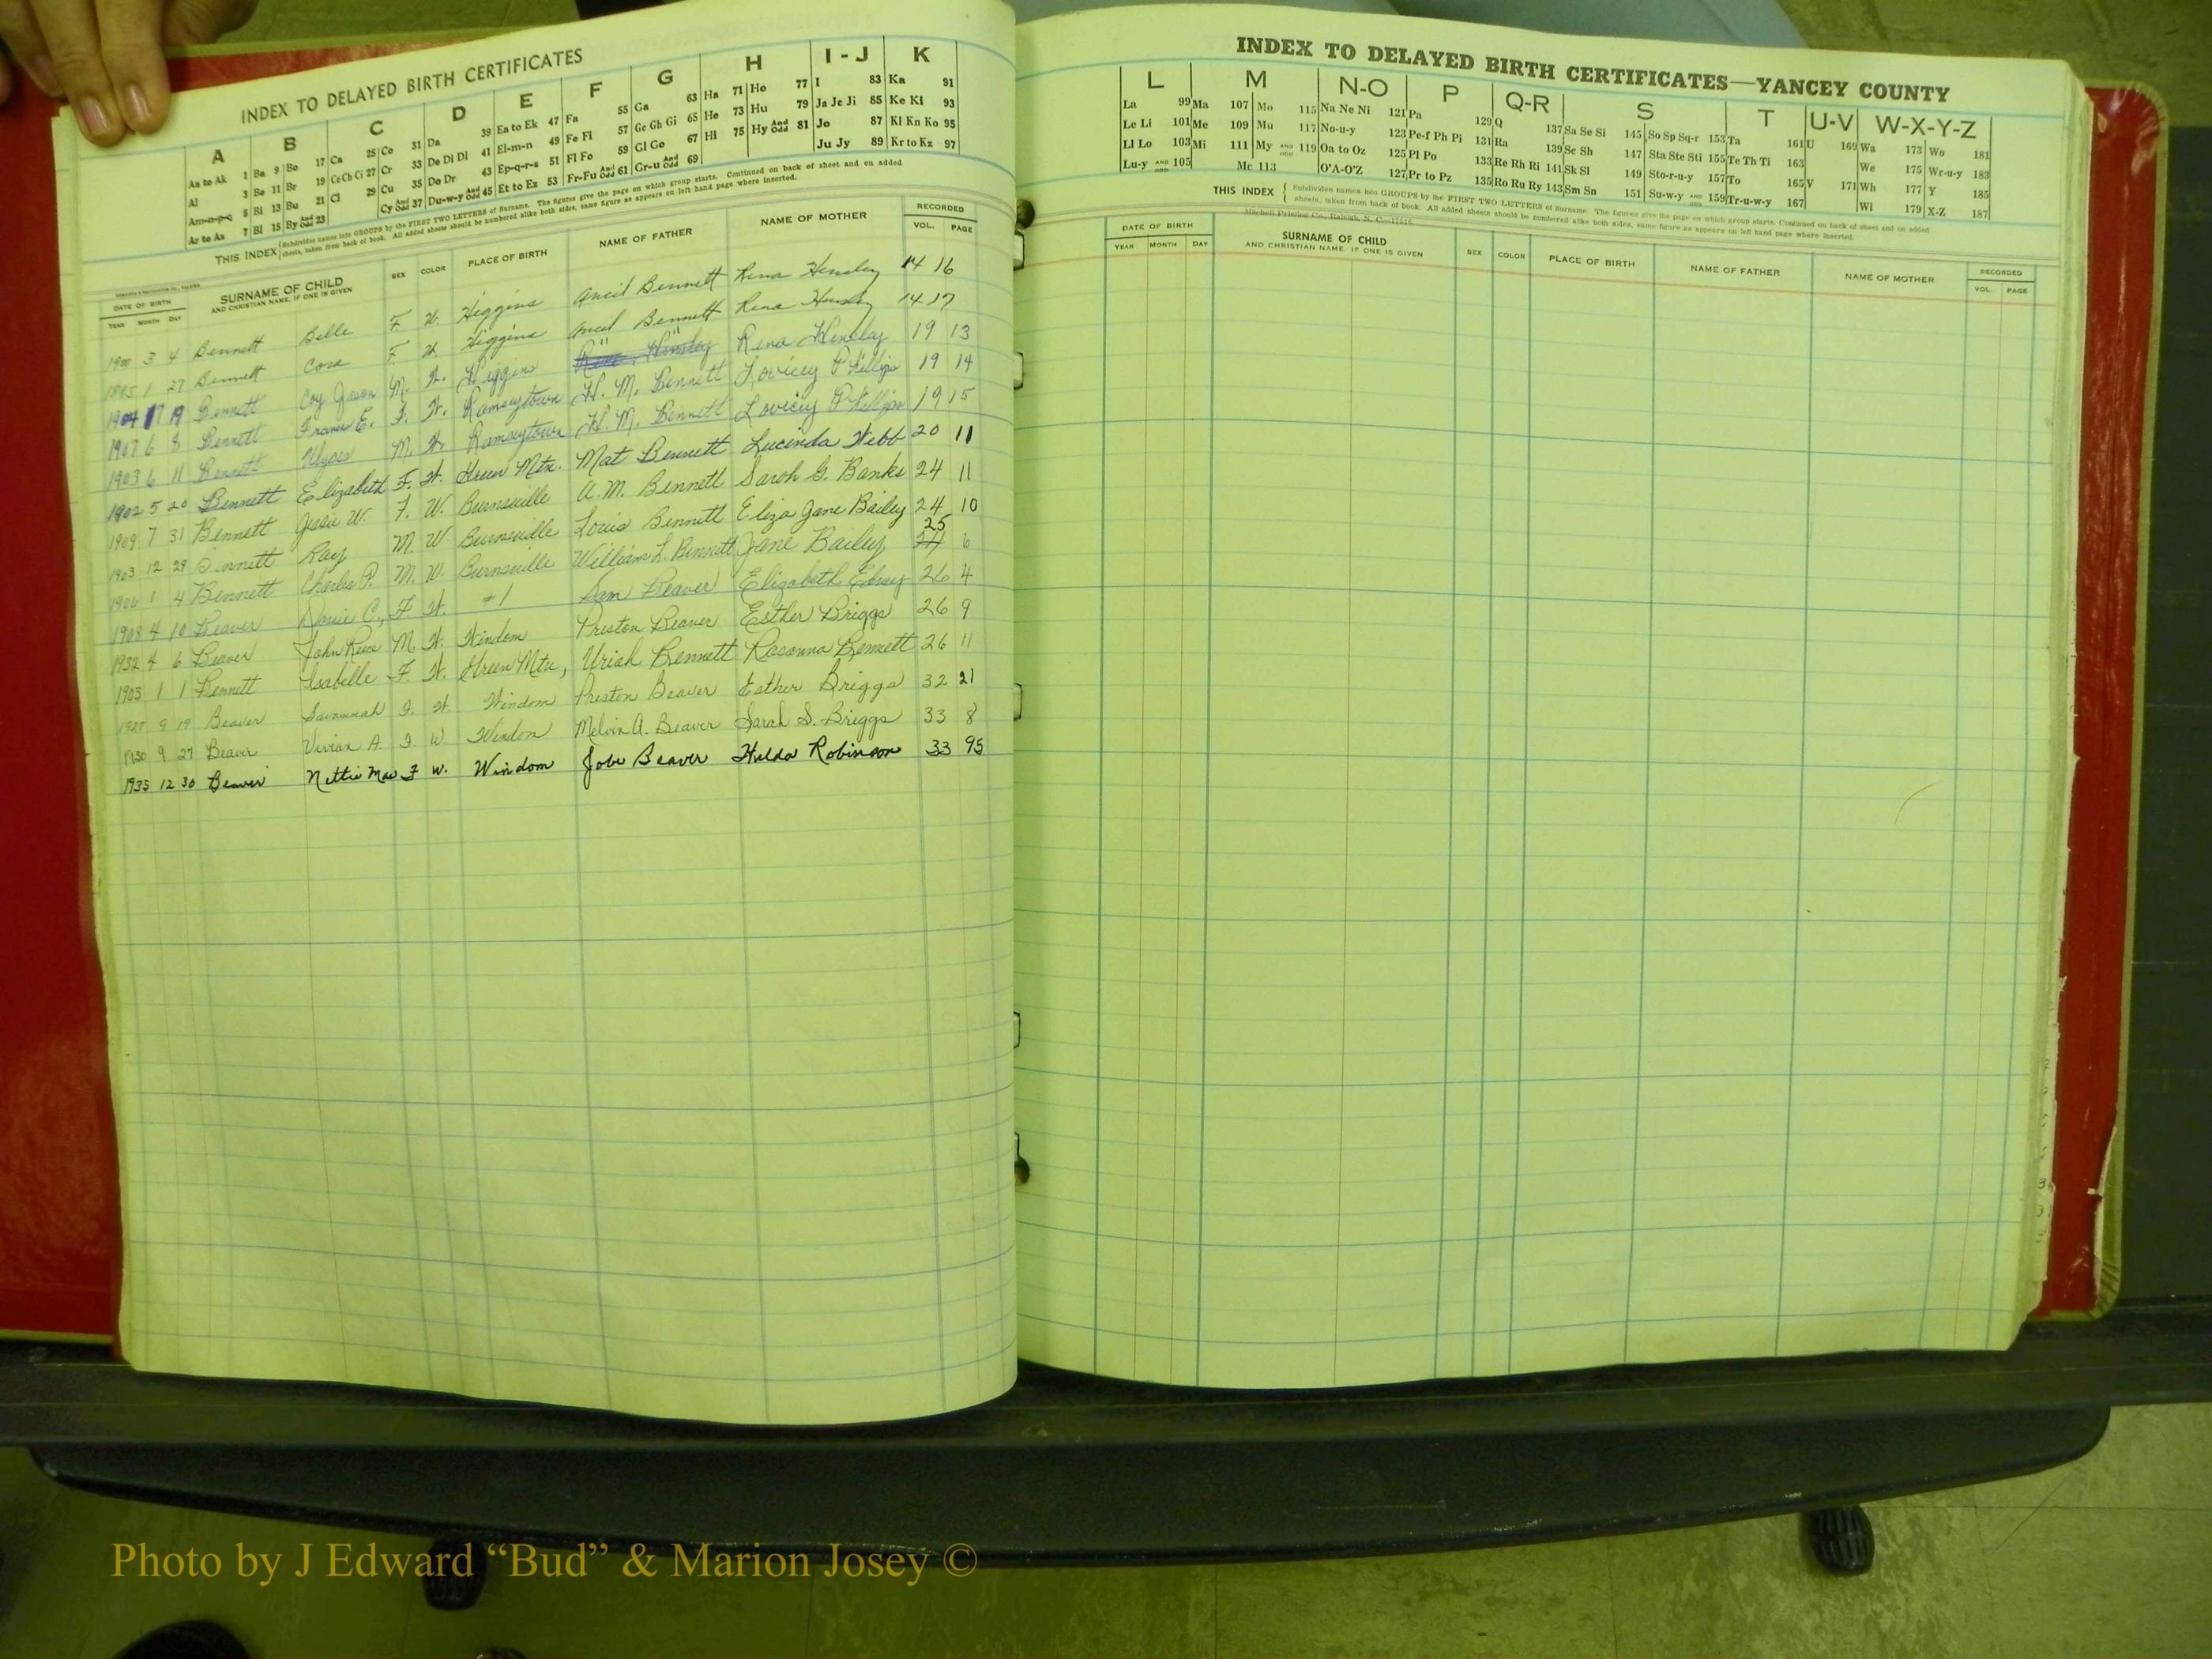 INDEX TO DELAYED BIRTH CERTIFICATES
A B C D E F G H I - J K
Aa to Ak 1 Ba 9 Bo 17 Ca 25 Co 31 Da 39 Ea to Ek 47 Fa 55 Ga 63 Ha 71 Ho 77 I 83 Ka 91
Al 3 Be 11 Br 19 Ce Ch Ci 27 Cr 33 De Di Dl 41 El-m-n 49 Fe Fi 57 Ge Gh Gi 65 He 73 Hu 79 Ja Je Ji 85 Ke Ki 93
Am-n-p-q 5 Bi 13 Bu 21 Cl 29 Cu 35 Do Dr 43 Ep-q-r-s 51 Fl Fo 59 Gl Go 67 Hi 75 Hy And Odd 81 Jo 87 Kl Kn Ko 95
Ar to Ax 7 Bl 15 By And Odd 23 Cy And Odd 37 Du-w-y And Odd 45 Et to Ez 53 Fr-Fu And Odd 61 Gr-u And Odd 69 Ju Jy 89 Kr to Kz 97
THIS INDEX Subdivides names into GROUPS by the FIRST TWO LETTERS of Surname. The figures give the page on which group starts. Continued on back of sheet and on added
sheets, taken from back of book. All added sheets should be numbered alike both sides, same figure as appears on left hand page where inserted.
DATE OF BIRTH SURNAME OF CHILD SEX COLOR PLACE OF BIRTH NAME OF FATHER NAME OF MOTHER RECORDED
YEAR MONTH DAY AND CHRISTIAN NAME, IF ONE IS GIVEN VOL. PAGE
1900 3 4 Bennett Belle F W. Higgins Ancil Bennett Rena Hensley 14 16
1 27 Bennett Cora F W. Higgins Ancil Bennett Rena Hensley 14 17
1904 Bennett Coy Jason M. W. Higgins Rena Hensley 19 13
1907 6 8 Bennett E. F. W. Ramseytown H. M. Bennett Lovicey Phillips 19 14
1903 6 11 Bennett M. W. Ramseytown H. M. Bennett Lovicey Phillips 19 15
1902 5 20 Bennett Elizabeth F. W. Green Mtn. Mat Bennett Lucinda Webb 20 11
1909 7 31 Bennett Jessie W. F. W. Burnsville A. M. Bennett Sarah G. Banks 24 11
1903 12 29 Bennett Ray M W. Burnsville Louis Bennett Eliza Jane Bailey 24 10
1906 1 4 Bennett Charles P. M. W. Burnsville William L. Bennett Jane Bailey 25 6
1908 4 10 Beaver C., F. W. #1 Sam Beaver Elizabeth 26 4
1932 4 6 Beaver John Reece M. W. Windom Preston Beaver Esther Briggs 26 9
1903 1 1 Bennett Isabelle F. W. Green Mtn, Uriah Bennett Rosanna Bennett 26 11
9 19 Beaver Savannah F. W. Windom Preston Beaver Esther Briggs 32 21
1930 9 27 Beaver Vivian A. F. W. Windom Melvin A. Beaver Sarah S. Briggs 33 8
1935 12 30 Beaver Nettie Mae F W. Windom Jobe Beaver Hulda Robinson 33 95
INDEX TO DELAYED BIRTH CERTIFICATES—YANCEY COUNTY
L M N-O P Q-R S T U-V W-X-Y-Z
La 99 Ma 107 Mo 115 Na Ne Ni 121 Pa 129 Q 137 Sa Se Si 145 So Sp Sq-r 153 Ta 161 U 169 Wa 173 Wo 181
Le Li 101 Me 109 Mu 117 No-u-y 123 Pe-f Ph Pi 131 Ra 139 Sc Sh 147 Sta Ste Sti 155 Te Th Ti 163 We 175 Wr-u-y 183
Ll Lo 103 Mi 111 My AND ODD 119 Oa to Oz 125 Pl Po 133 Re Rh Ri 141 Sk Sl 149 Sto-r-u-y 157 To 165 V 171 Wh 177 Y 185
Lu-y AND ODD 105 Mc 113 O'A-O'Z 127 Pr to Pz 135 Ro Ru Ry 143 Sm Sn 151 Su-w-y AND ODD 159 Tr-u-w-y 167 Wi 179 X-Z 187
THIS INDEX Subdivides names into GROUPS by the FIRST TWO LETTERS of Surname. The figures give the page on which group starts. Continued on back of sheet and on added
sheets, taken from back of book. All added sheets should be numbered alike both sides, same figure as appears on left hand page where inserted.
Mitchell Printing Co., Raleigh, N. C.
DATE OF BIRTH SURNAME OF CHILD SEX COLOR PLACE OF BIRTH NAME OF FATHER NAME OF MOTHER RECORDED
YEAR MONTH DAY AND CHRISTIAN NAME, IF ONE IS GIVEN VOL. PAGE
Photo by J Edward “Bud” & Marion Josey ©